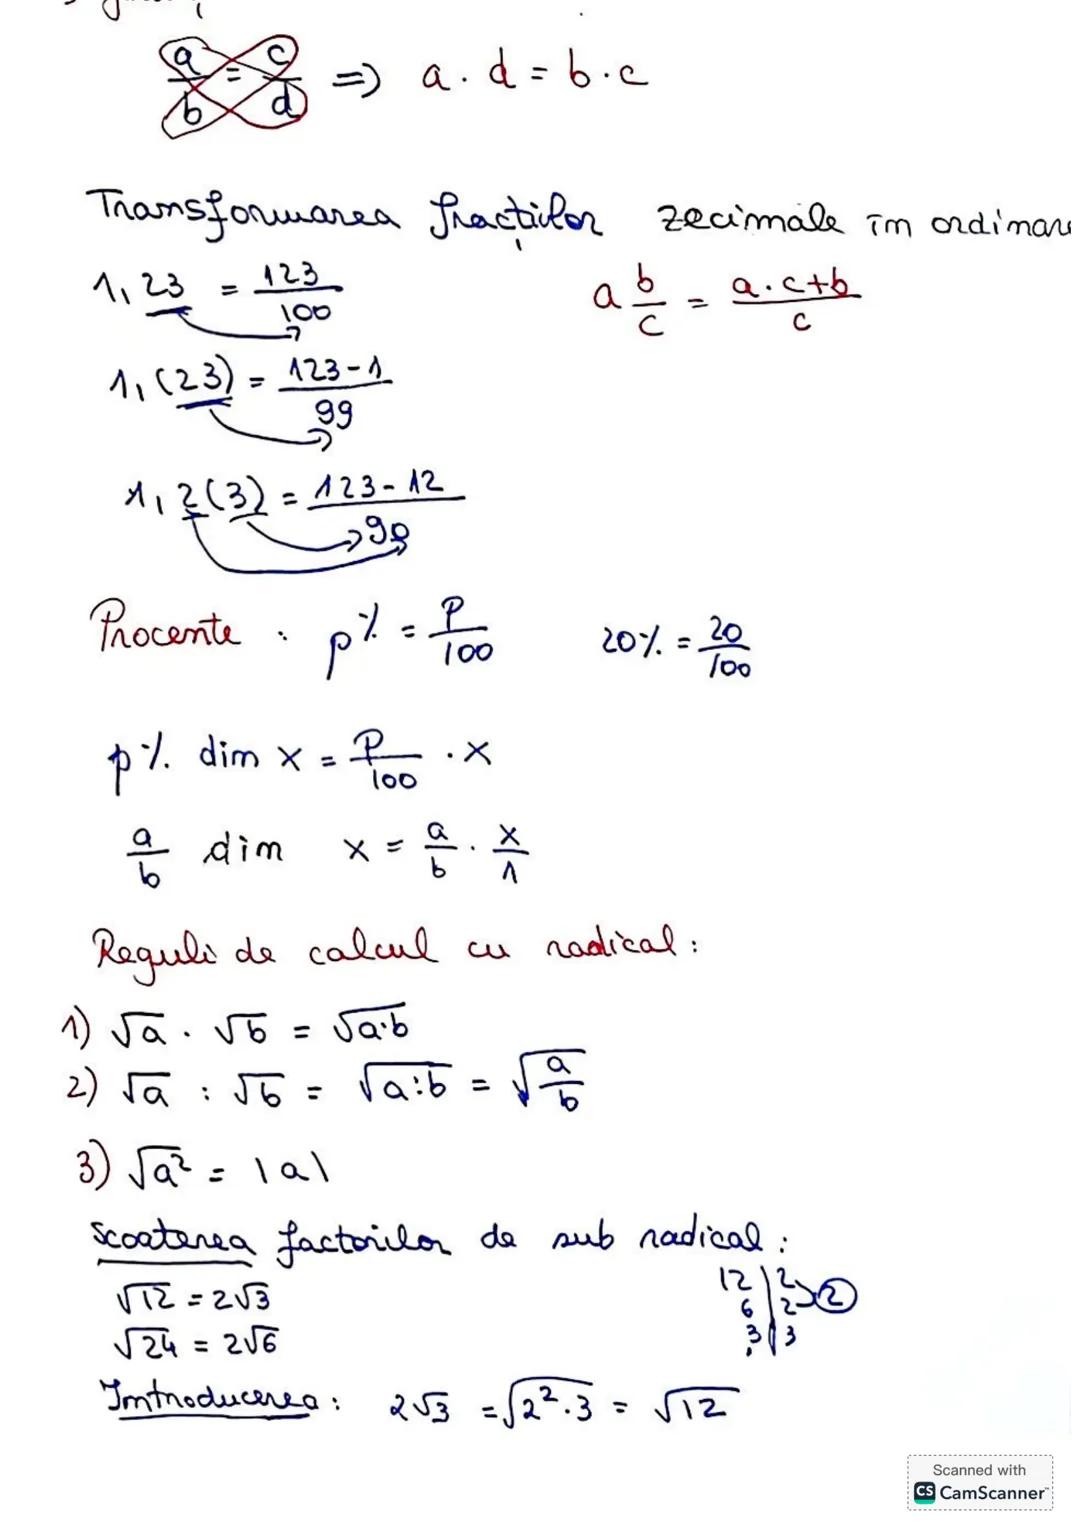 a/b = c/d => a · d = b · c
Transformarea fracțiilor zecimale în ordinare
1,23 = 123/100
a b/c = a·c+b/c
1,(23) = 123-1/99
1,2(3) = 123-12/90
Procente : p% = p/100 20% = 20/100
p% din x = p/100 · x
a/b din x = a/b · x/1
Reguli de calcul cu radical:
1) √a · √b = √a·b
2) √a : √b = √a:b = √a/b
3) √a² = |a|
scoaterea factorilor de sub radical:
√12 = 2√3
√24 = 2√6
12 | 2
6 | 2 2
3 | 3
Introducerea: 2√3 = √2²·3 = √12
Scanned with
CS CamScanner